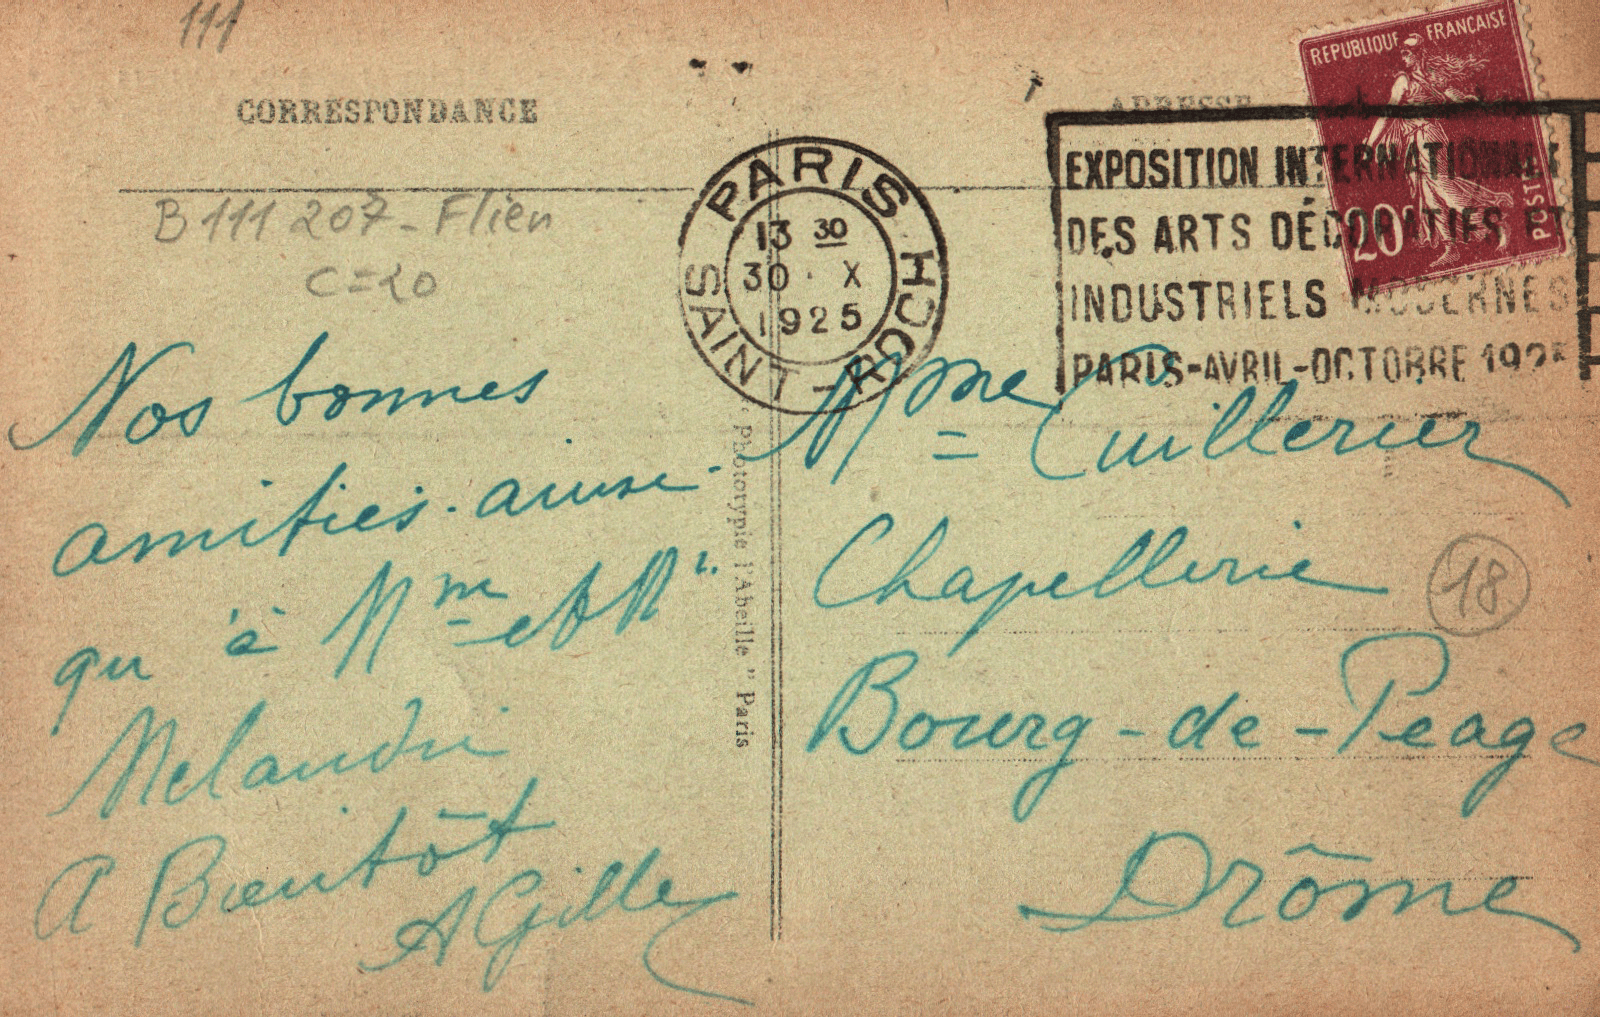 111
CORRESPONDANCE
ADRESSE
B 111 207 - Flien
C = 20
REPUBLIQUE FRANÇAISE
20c
POSTES
PARIS
SAINT-ROCH
13 30
30 . X
1925
EXPOSITION INTERNATIONALE
DES ARTS DÉCORATIFS ET
INDUSTRIELS MODERNES
PARIS-AVRIL-OCTOBRE 1925
Nos bonnes
amitiés. ainsi
qu à Mme et Mr
Melandri
A Bientôt
A Gilles
Phototypie l'Abeille " Paris
Mme Cuillerier
Chapellerie
18
Bourg-de-Peage
Drôme